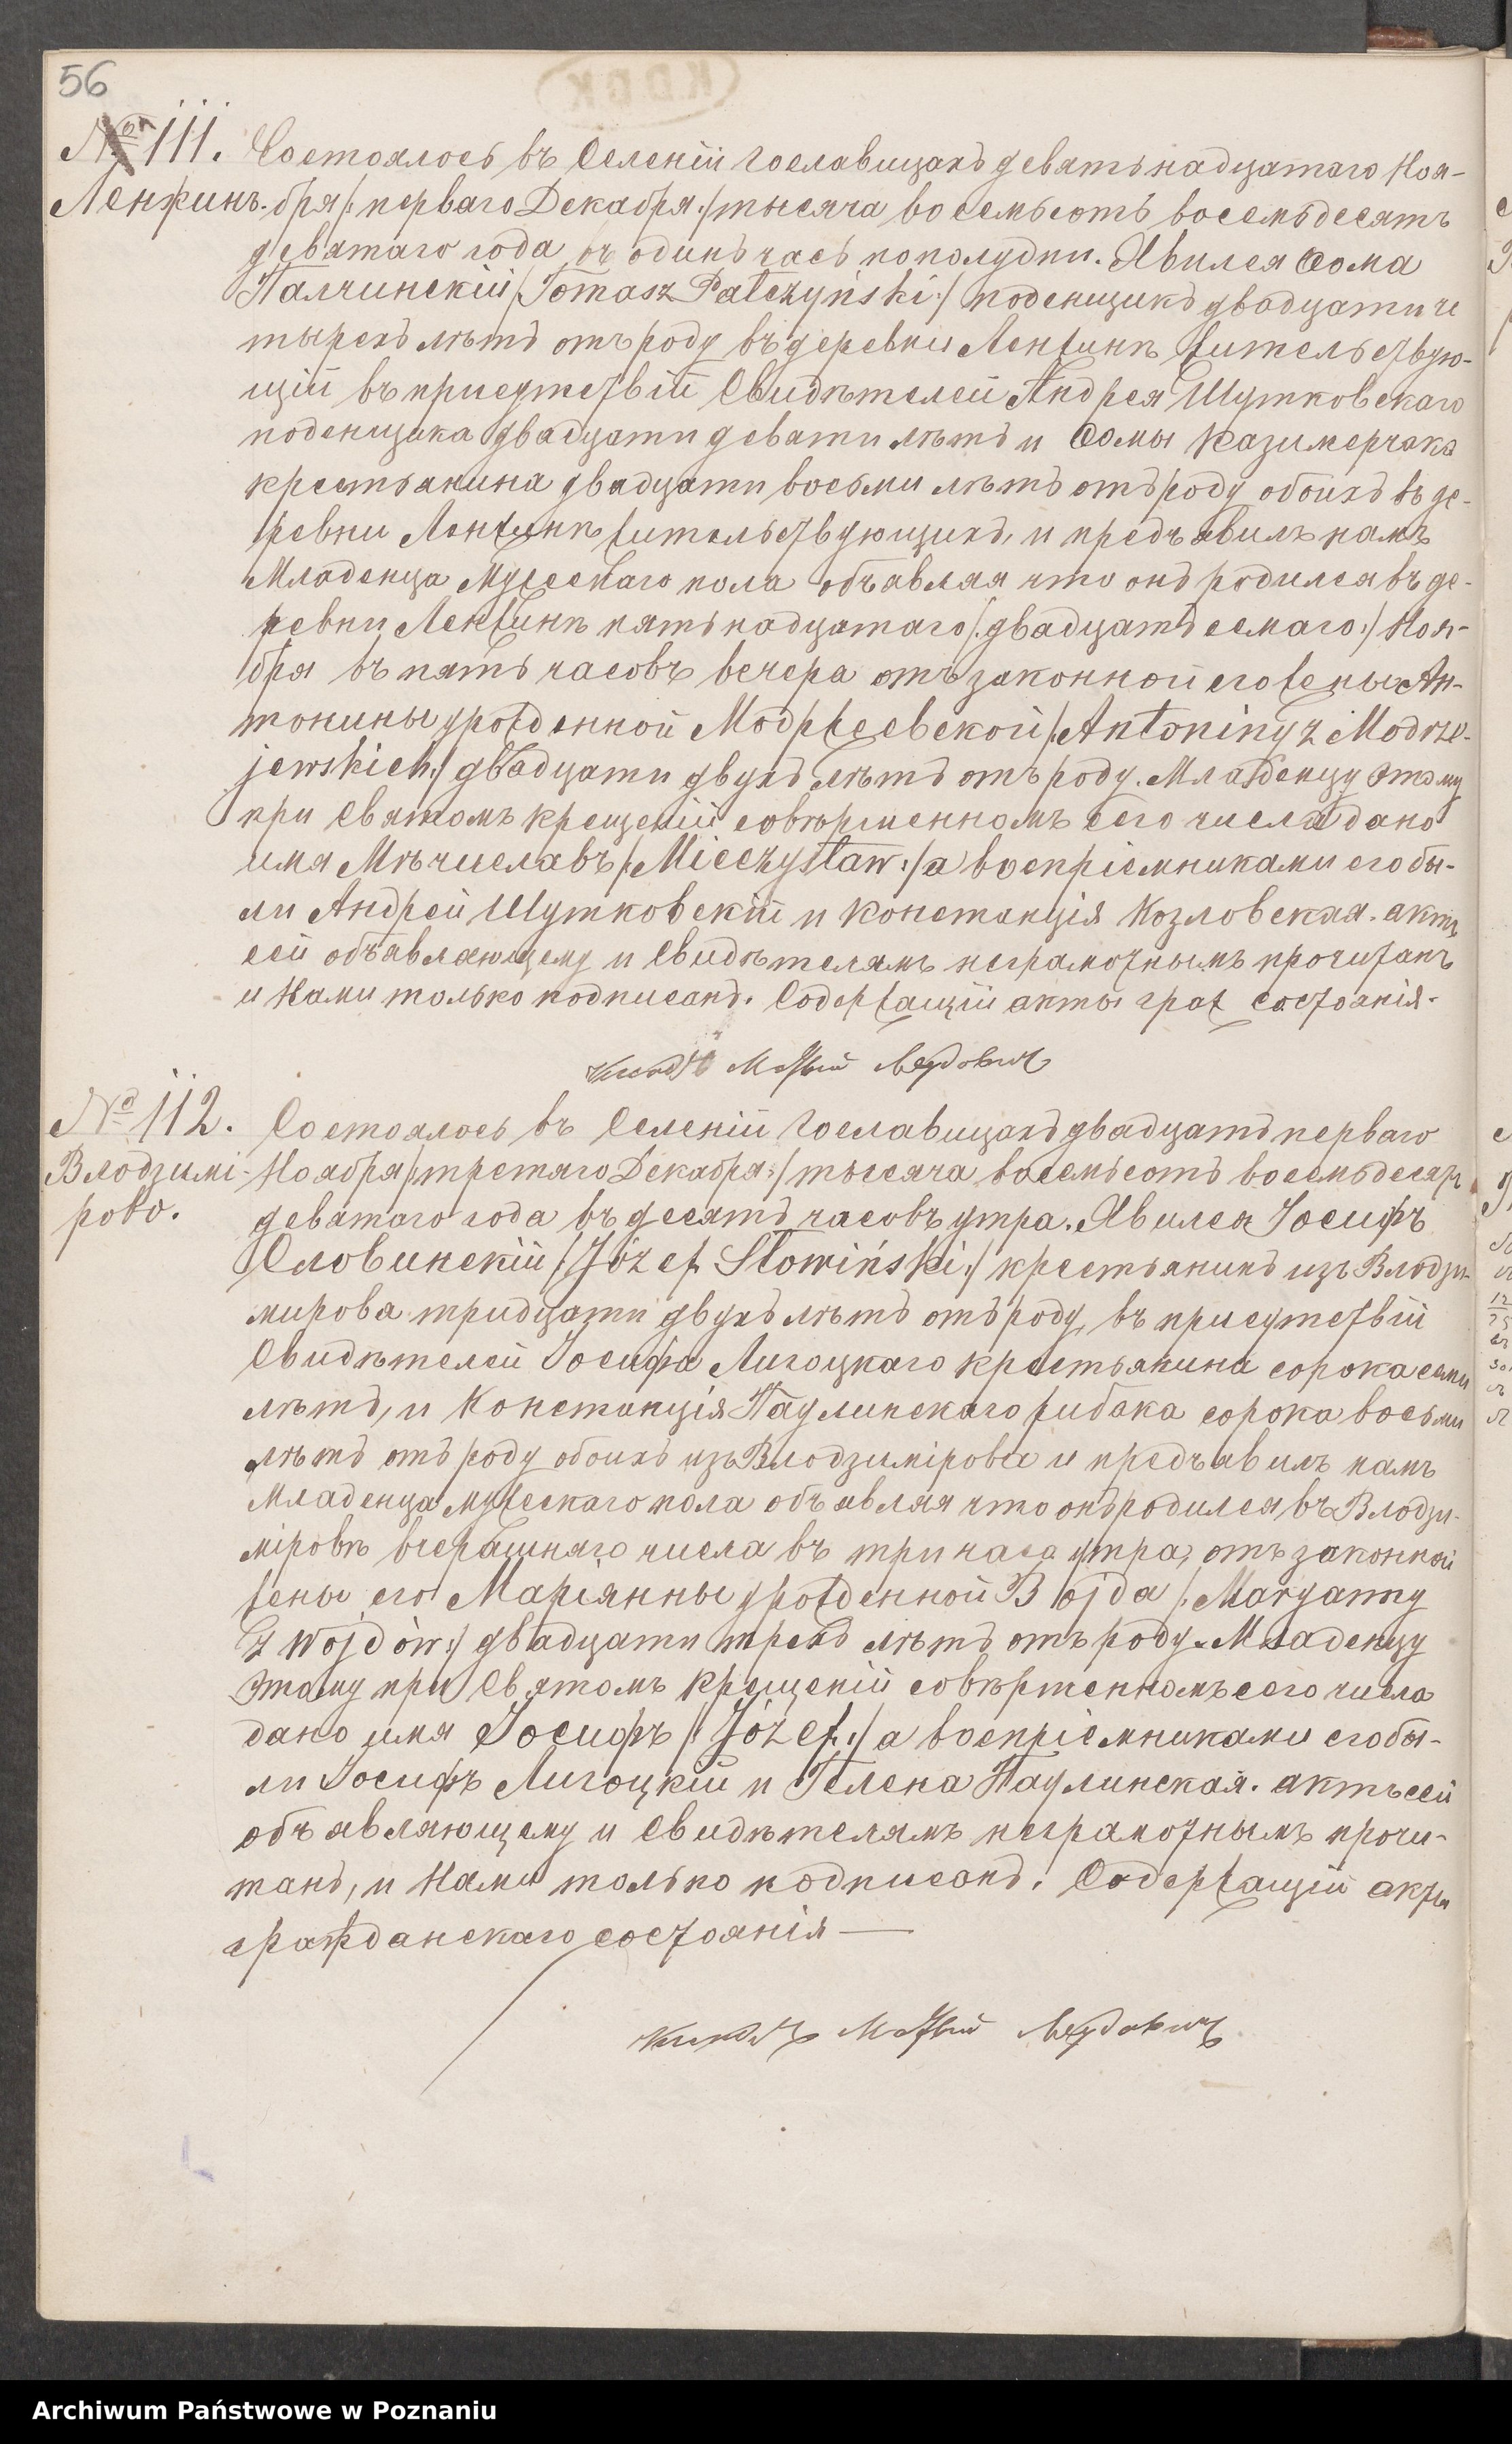 56
№ 111.
Ленжинъ.
Состоялось въ Селеніи Гославицахъ девятьнадцатаго Ноя-
бря /: перваго Декабря :/ тысяча восемьсотъ восемьдесятъ
девятаго года, въ одинъ часъ пополудни. Явился Ѳома
Палчинскій /: Tomasz Pałczyński :/ поденщикъ двадцати че
тырехъ лѣтъ отъ роду въ деревни Ленжинѣ жительствую-
щій въ присутствіи Свидѣтелей Андрея Шутковскаго
поденщика двадцати девяти лѣтъ и Ѳомы Казимерчака
крестьянина двадцати восьми лѣтъ отъ роду обоихъ въ де-
ревни Ленжинѣ жительствующихъ, и предъявилъ намъ
Младенца Мужескаго пола объявляя что онъ родился въ де-
ревни Ленжинѣ пятьнадцатаго /: двадцать семаго :/ Ноя-
бря въ пять часовъ вечера отъ законной его жены Ан-
тонины урожденной Модржеевской /: Antoniny z Modrze-
jewskich :/ двадцати двухъ лѣтъ отъ роду. Младенцу этому
при Святомъ крещеніи совѣршенномъ сего числа дано
имя Мѣчиславъ /: Mieczysław :/ а воспріемниками его бы-
ли Андрей Шутковскій и Констанція Козловская. актъ
сей объявляющему и Свидѣтелямъ неграмотнымъ прочитанъ
и Нами только подписанъ. Содержащій акты граж состоянія.
№ 112.
Влодзимі-
рово.
Состоялось въ Селеніи Гославицахъ двадцать перваго
Ноября /: третяго Декабря :/ тысяча восемьсотъ восемьдесятъ
девятаго года въ десять часовъ утра. Явился Іосифъ
Словинскій /: Józef Słowiński :/ крестьянинъ изъ Влодзи-
мирова тридцати двухъ лѣтъ отъ роду, въ присутствіи
Свидѣтелей Іосифа Лигоцкаго крестьянина сорока семи
лѣтъ, и Констанція Паулинскаго рибака сорока восьми
лѣтъ отъ роду обоихъ изъ Влодзимірова и предъявилъ намъ
Младенца мужескаго пола объявляя что онъ родился въ Влодзи-
міровѣ вчерашняго числа въ три часа утра, отъ законной
жены его Маріянны урожденной Войда /: Maryanny
z Wojdów :/ двадцати трехъ лѣтъ отъ роду. Младенцу
этому при Святомъ крещеніи совѣршенномъ сего числа
дано имя Іосифъ /: Józef :/ а воспріемниками его бы-
ли Іосифъ Лигоцкій и Гелена Паулинская. актъ сей
объявляющему и Свидѣтелямъ неграмотнымъ прочи-
танъ, и Нами только подписанъ. Содержащій акты
гражданскаго состоянія —
Archiwum Państwowe w Poznaniu